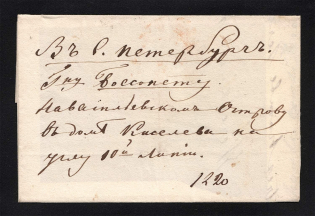 Въ С. Петербургъ.
Гну
Наваслъевскомъ Острову
въ домъ Киселева на
углу 10й линiи.
1220